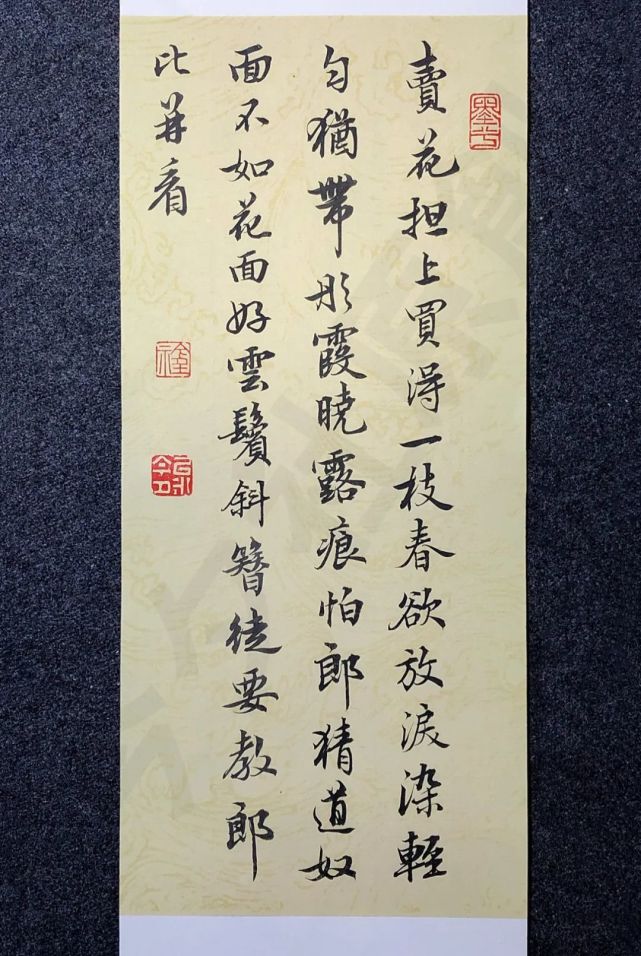 賣花担上買得一枝春欲放淚染輕
匀猶帶彤霞曉露痕怕郎猜道奴
面不如花面好雲鬢斜簪徒要教郎
比并看